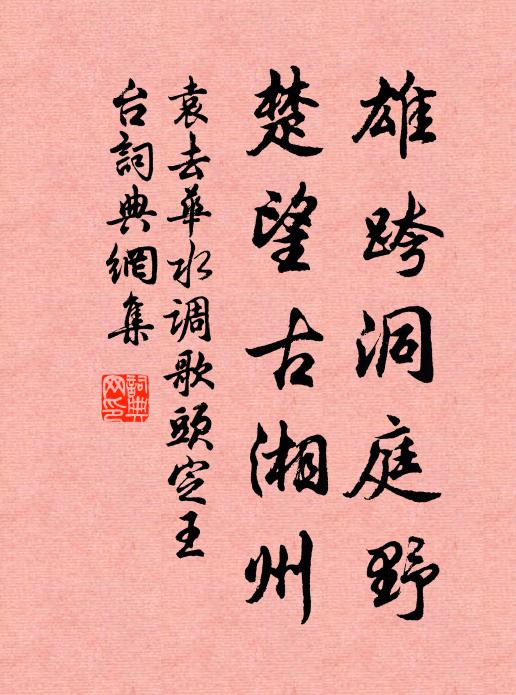 雄跨洞庭野
楚望古湘州
袁去華水调歌頭定王
台詞典網集
詞典网印